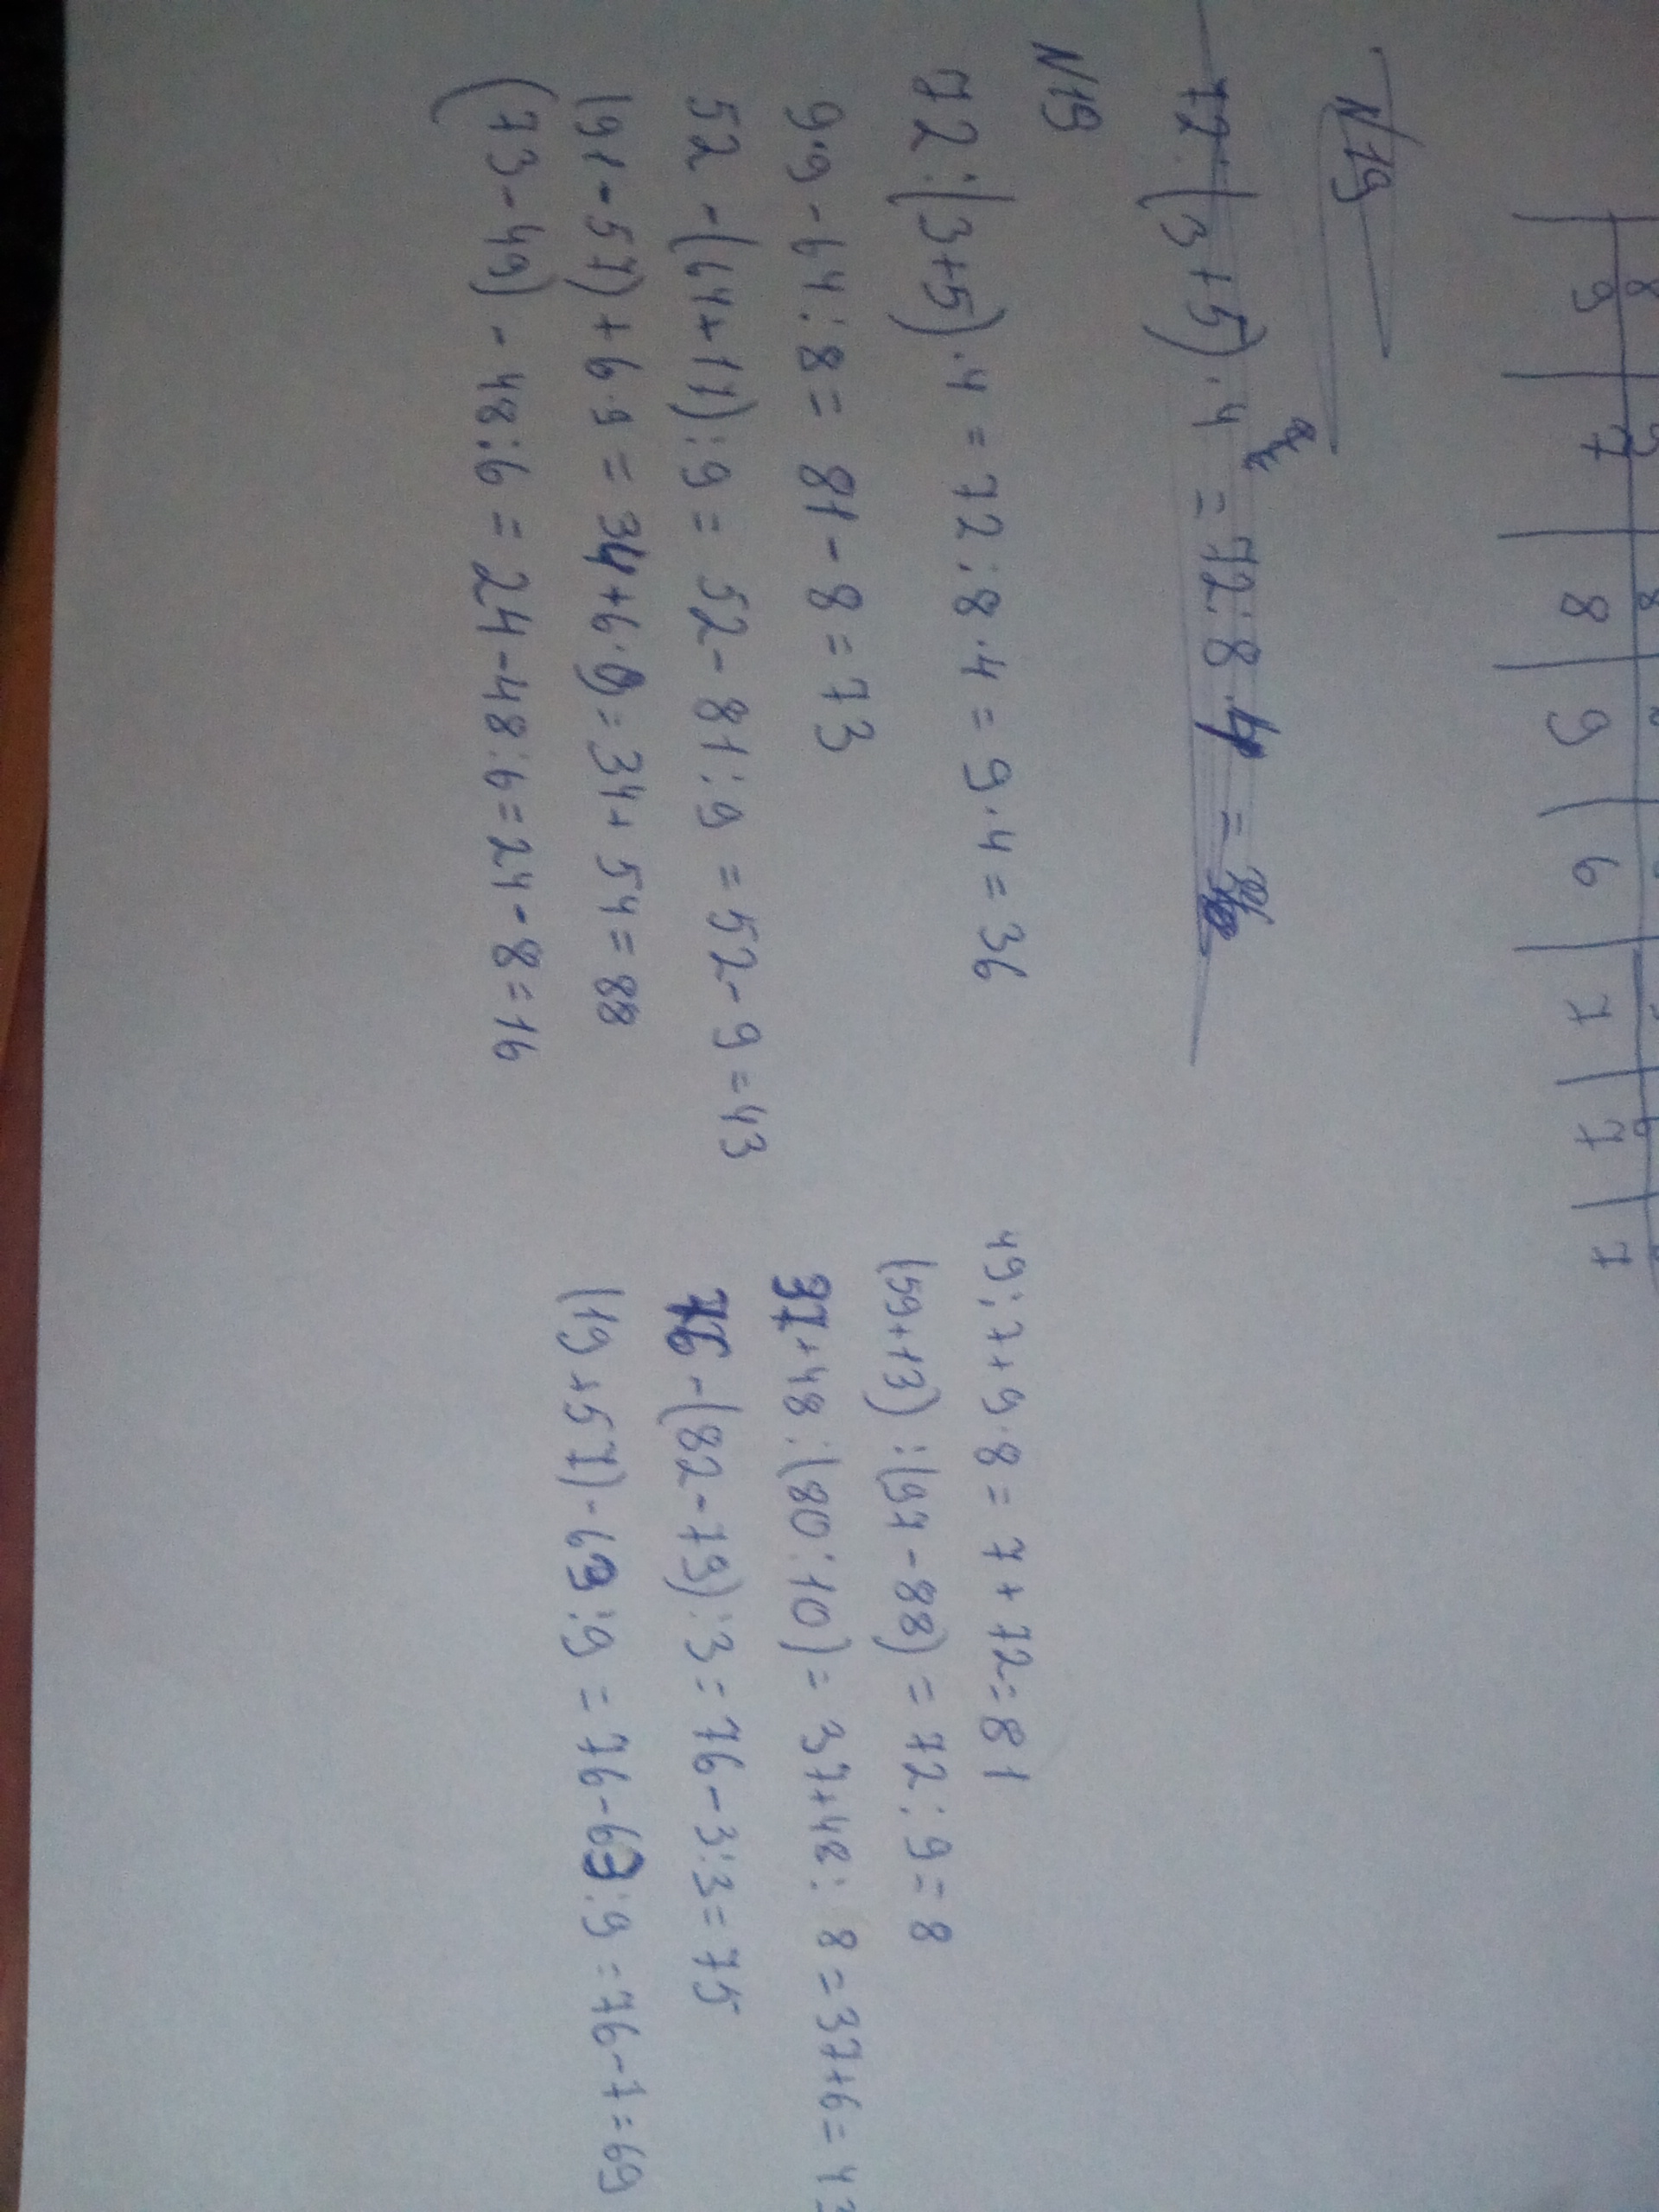 8 9 8
9 7 8 9 6 7 7 7
N19
72:(3+5)·4 = 72:8·4 =
N19
72:(3+5)·4 = 72:8·4 = 9·4 = 36
9·9-64:8 = 81-8 = 73
52-(64+17):9 = 52-81:9 = 52-9 = 43
(91-57)+6·9 = 34+6·9 = 34+54 = 88
(73-49)-48:6 = 24-48:6 = 24-8 = 16
49:7+9·8 = 7+72 = 81
(59+13):(97-88) = 72:9 = 8
37+48:(80:10) = 37+48:8 = 37+6 = 43
76-(82-79):3 = 76-3:3 = 75
(19+57)-63:9 = 76-63:9 = 76-7 = 69